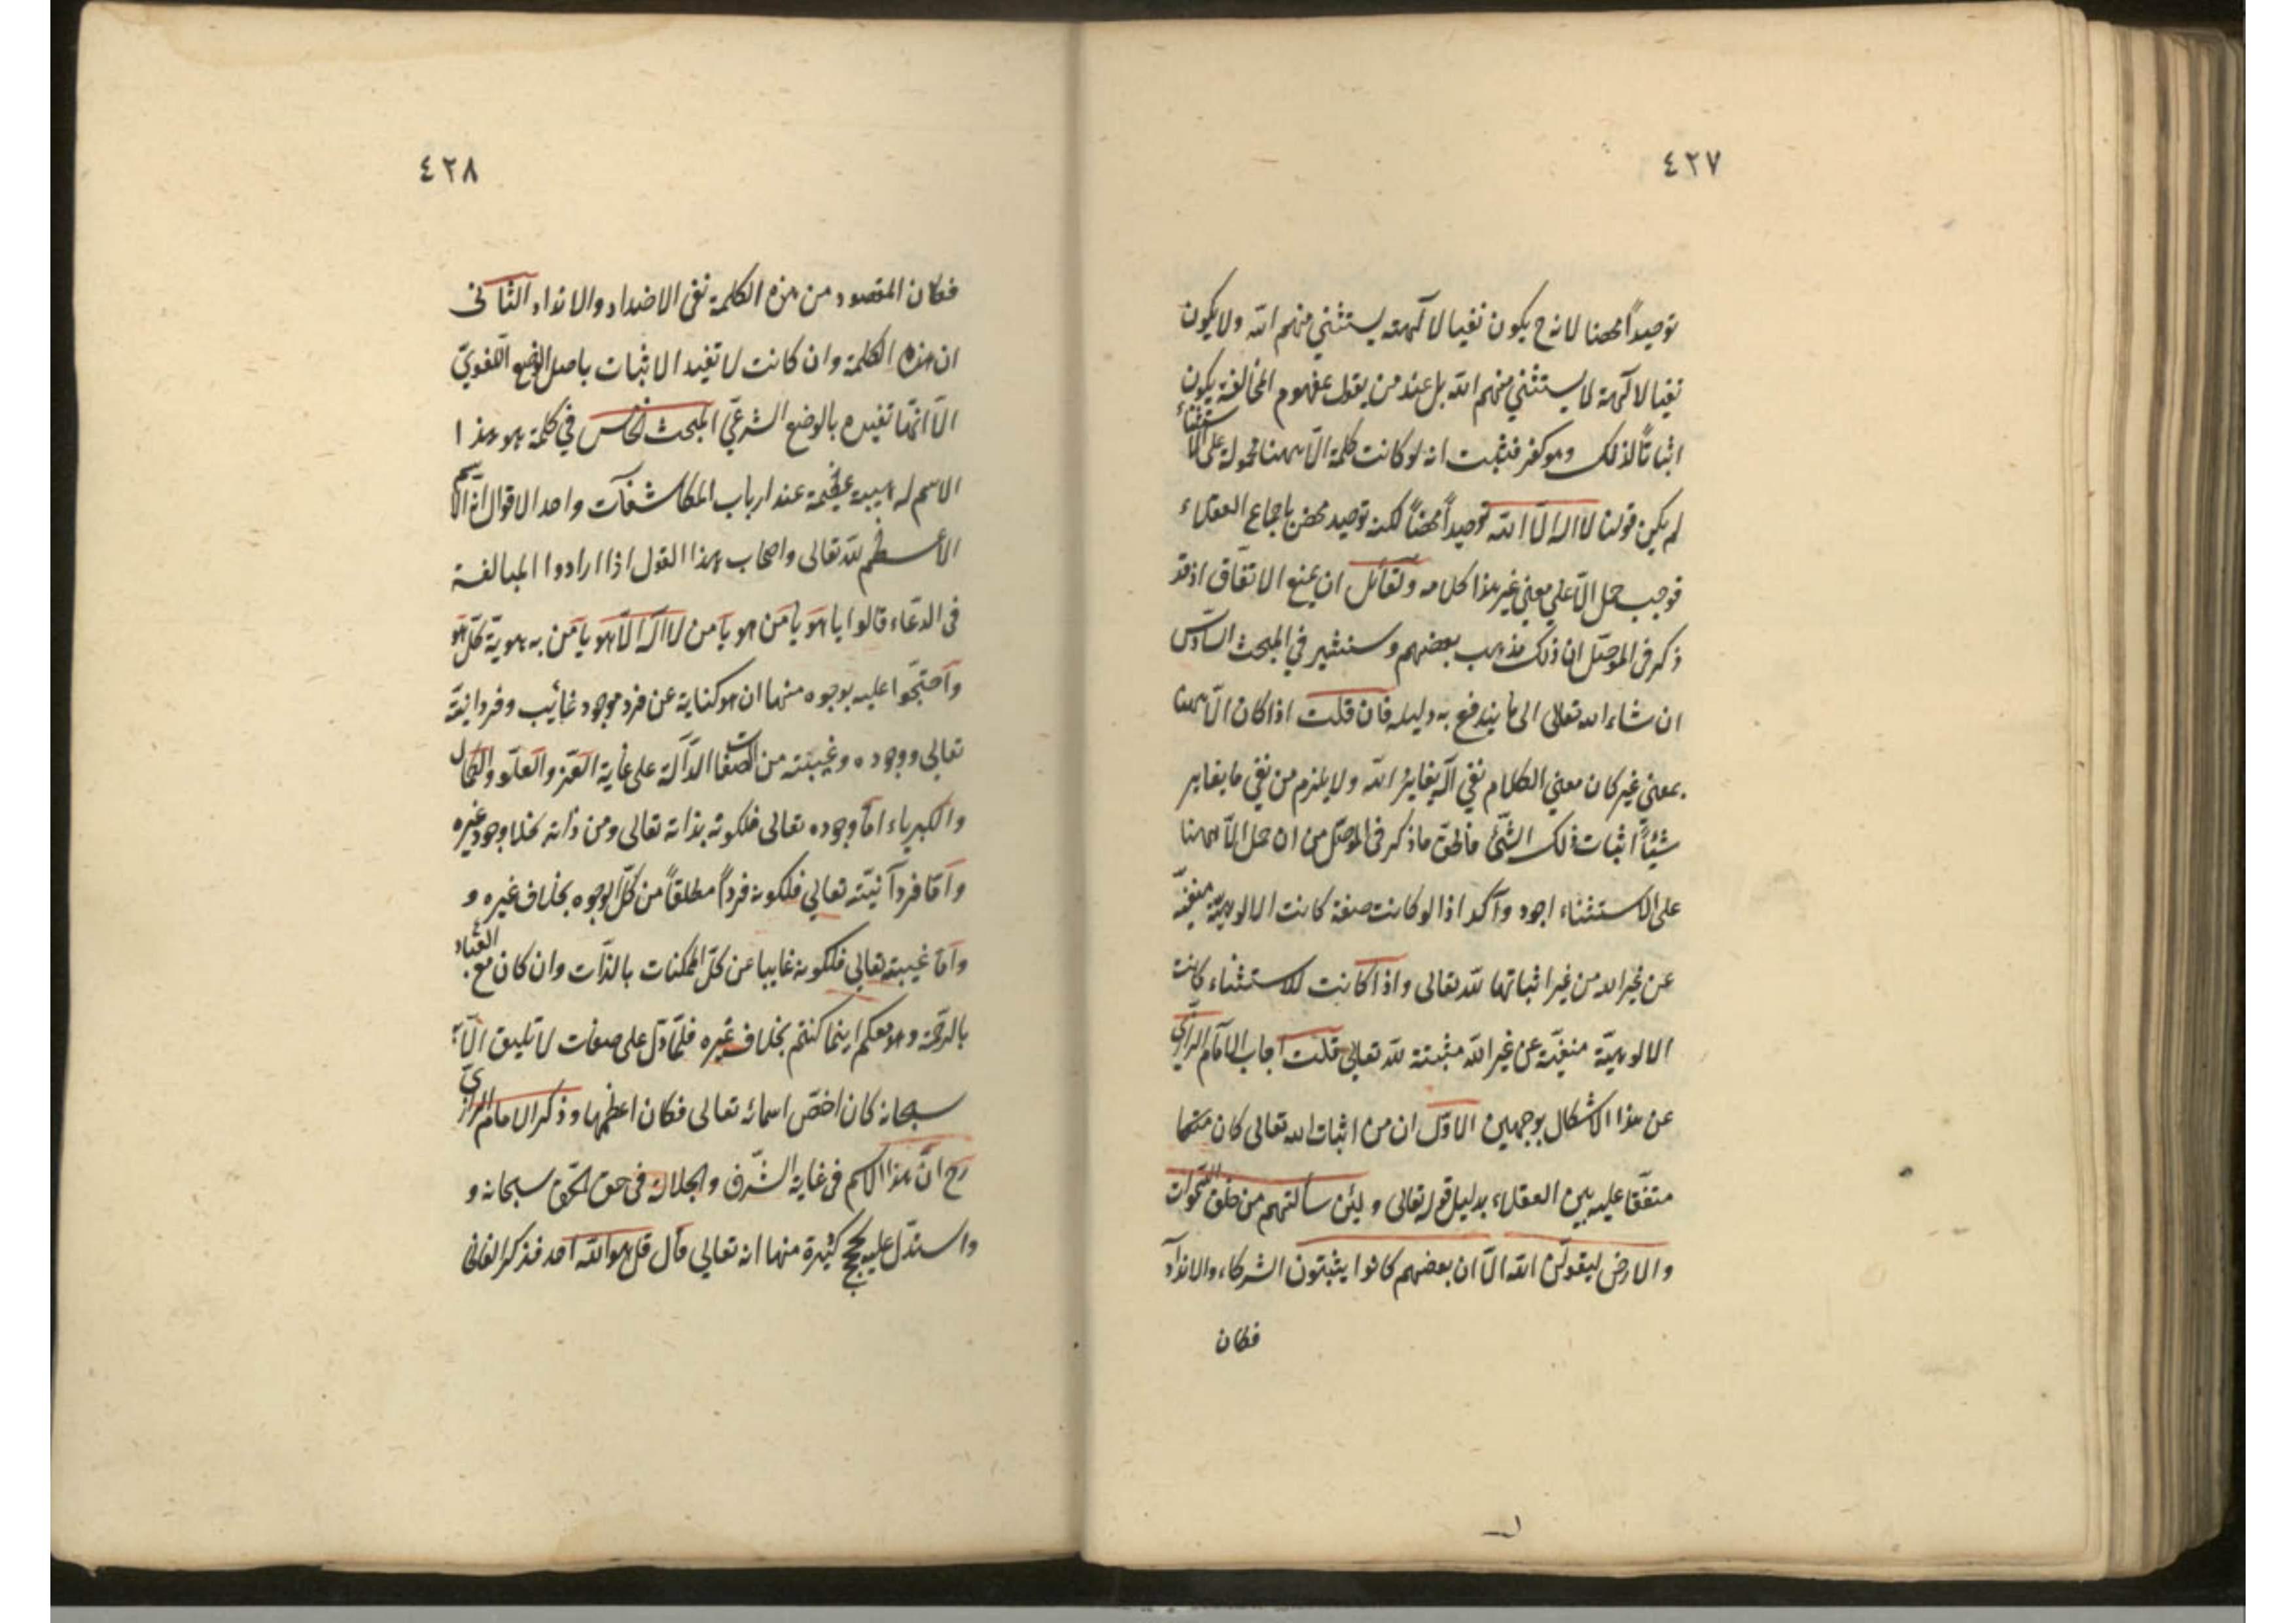 ٤٢٧
توحيداً محضا لانه ح يكون نفيا لالهة يستثنى منهم الله ولا يكون
نفيا لالهة لا يستثنى منهم الله بل عند من يقول بمفهوم المخالفة يكون
اثباتاً لذلك وهو كفر فثبت انه لو كانت كلمة الّا ههنا محمولة على الاستثناء
لم يكن قولنا لا اله الّا الله توحيداً محضاً لكنه توحيد محض باجماع العقلاء
فوجب حمل الّا على معنى غير هذا كلامه ولقائل ان يمنع الاتفاق اذ قد
ذكر فى الموصّل ان ذلك مذهب بعضهم وسنشير في المبحث السادس
ان شاء الله تعالى الى ما يندفع به دليله فان قلت اذا كان الّا ههنا
بمعنى غير كان معنى الكلام نفي اله يغاير الله ولا يلزم من نفي ما يغاير
شيئاً اثبات ذلك الشئ فالحق ما ذكر فى الموصّل من ان حمل الّا ههنا
على الاستثناء اجود وآكد اذ لو كانت صفة كانت الالوهيّة منفيّة
عن غير الله من غير اثباتها لله تعالى واذا كانت للاستثناء كانت
الالوهيّة منفيّة عن غير الله مثبتة لله تعالى قلت اجاب الامام الرازي
عن هذا الاشكال بوجهين الاوّل ان من اثبات الله تعالى كان
متفقا عليه بين العقلاء بدليل قوله تعالى ولئن سألتهم من خلق السموات
والارض ليقولنّ الله الّا ان بعضهم كانوا يثبتون الشركاء والانداد
فكان
٤٢٨
فكان المقصود من هذه الكلمة نفى الاضداد والانداد الثانى
ان هذه الكلمة وان كانت لا تفيد الاثبات باصل الوضع اللغويّ
الّا انّها تفيده بالوضع الشرعيّ المبحث الخامس في كلمة هو وهذا
الاسم له هيبة عظيمة عند ارباب المكاشفات واحد الاقوال انه الاسم
الأعظم لله تعالى واصحاب هذا القول اذا ارادوا المبالغة
فى الدّعاء قالوا يا هو يا من هو يا من لا اله الّا هو يا من به هوية كلّ هو
واحتجّوا عليه بوجوه منها ان هو كناية عن فرد موجود غائب وفردانيّة
تعالى ووجوده وغيبته من الصفات الدّالّة على غاية العزّ والعلوّ والكمال
والكبرياء امّا وجوده تعالى فلكونه بذاته تعالى ومن ذاته بخلاف وجود غيره
وامّا فردانيّته تعالى فلكونه فرداً مطلقاً من كلّ الوجوه بخلاف غيره و
وامّا غيبته تعالى فلكونه غايبا عن كلّ الممكنات بالذّات وان كان مع العباد
بالرحمة وهو معكم اينما كنتم بخلاف غيره فلمّا دلّ على صفات لا تليق الّا به
سبحانه كان اخصّ اسمائه تعالى فكان اعظمها وذكر الامام الرازيّ
رح انّ هذا الاسم فى غاية الشّرف والجلالة فى حق الحقّ سبحانه و
واستدلّ عليه بحجج كثيرة منها انه تعالى قال قل هو الله احد فذكر الفانى